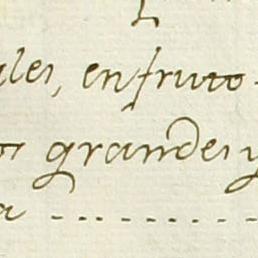 ales, en fruto
os grandes y
a ..........